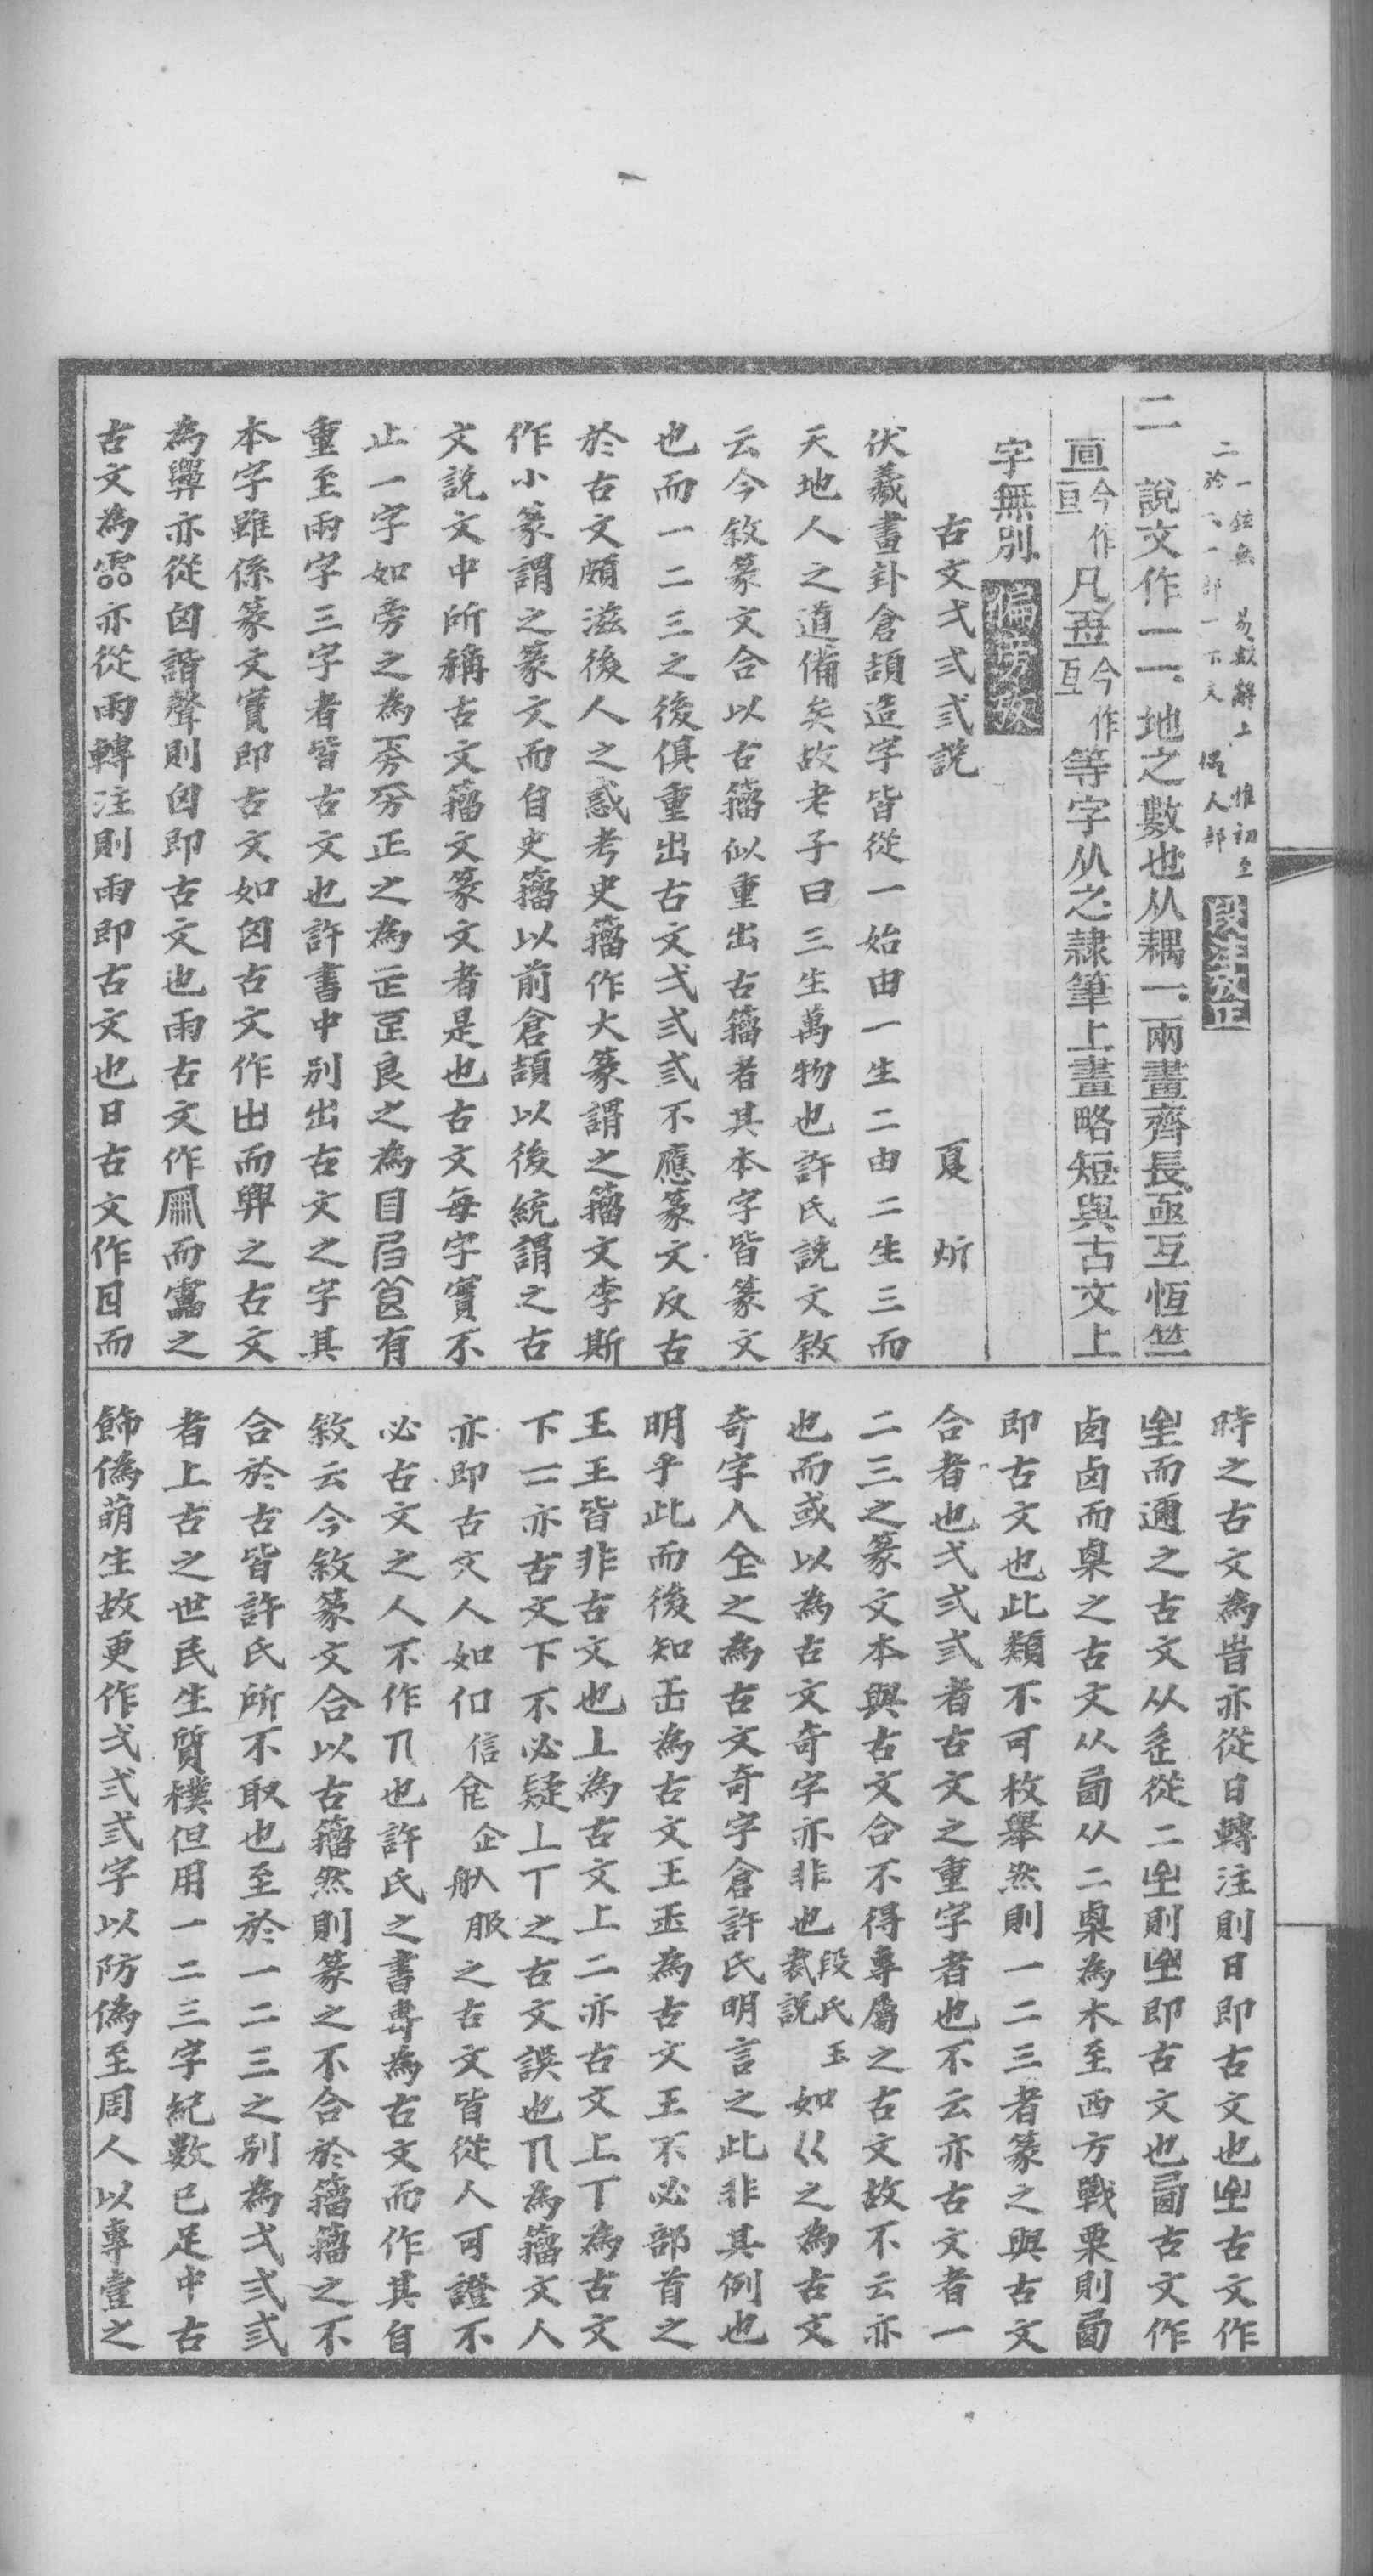 二說文作二二、地之數也从耦一、兩畫齊長亟互恆竺
亘今作亘凡𠄢今作亙等字从之隷筆上畫略短與古文上
字無別 偏旁攷
古文弌弍弎説 夏炘
伏羲畫卦倉頡造字皆從一始由一生二由二生三而
天地人之道備矣故老子曰三生萬物也許氏説文敘
云今敘篆文合以古籀似重出古籀者其本字皆篆文
也而一二三之後俱重出古文弌弍弎不應篆文反古
於古文頗滋後人之惑考史籀作大篆謂之籀文李斯
作小篆謂之篆文而自史籀以前倉頡以後統謂之古
文説文中所稱古文籀文篆文者是也古文每字實不
止一字如旁之為正之為良之為有
重至兩字三字者皆古文也許書中別出古文之字其
本字雖係篆文實即古文如囟古文作而與之古文
為亦從囟諧聲則囟即古文也雨古文作而之
古文為亦從雨轉注則雨即古文也日古文作而
時之古文為旹亦從日轉注則日即古文也古文作
而邇之古文从從二則即古文也古文作
卤而㮚之古文从从二㮚為木至西方戰栗則
即古文也此類不可枚舉然則一二三者篆之與古文
合者也弌弍弎者古文之重字者也不云亦古文者一
二三之篆文本與古文合不得專屬之古文故不云亦
也而或以為古文奇字亦非也段氏玉裁説如巜之為古文
奇字人仝之為古文奇字倉許氏明言之此非其例也
明乎此而後知𠙻為古文王玉為古文王不必部首之
王王皆非古文也丄為古文上二亦古文上丅為古文
下二亦古文下不必疑丄丅之古文誤也為籀文人
亦即古文人如㐰信企服之古文皆從人可證不
必古文之人不作也許氏之書專為古文而作其自
敘云今敘篆文合以古籀然則篆之不合於籀籀之不
合於古皆許氏所不取也至於一二三之別為弌弍弎
者上古之世民生質樸但用一二三字紀數已足中古
飾偽萌生故更作弌弍弎字以防偽至周人以專壹之